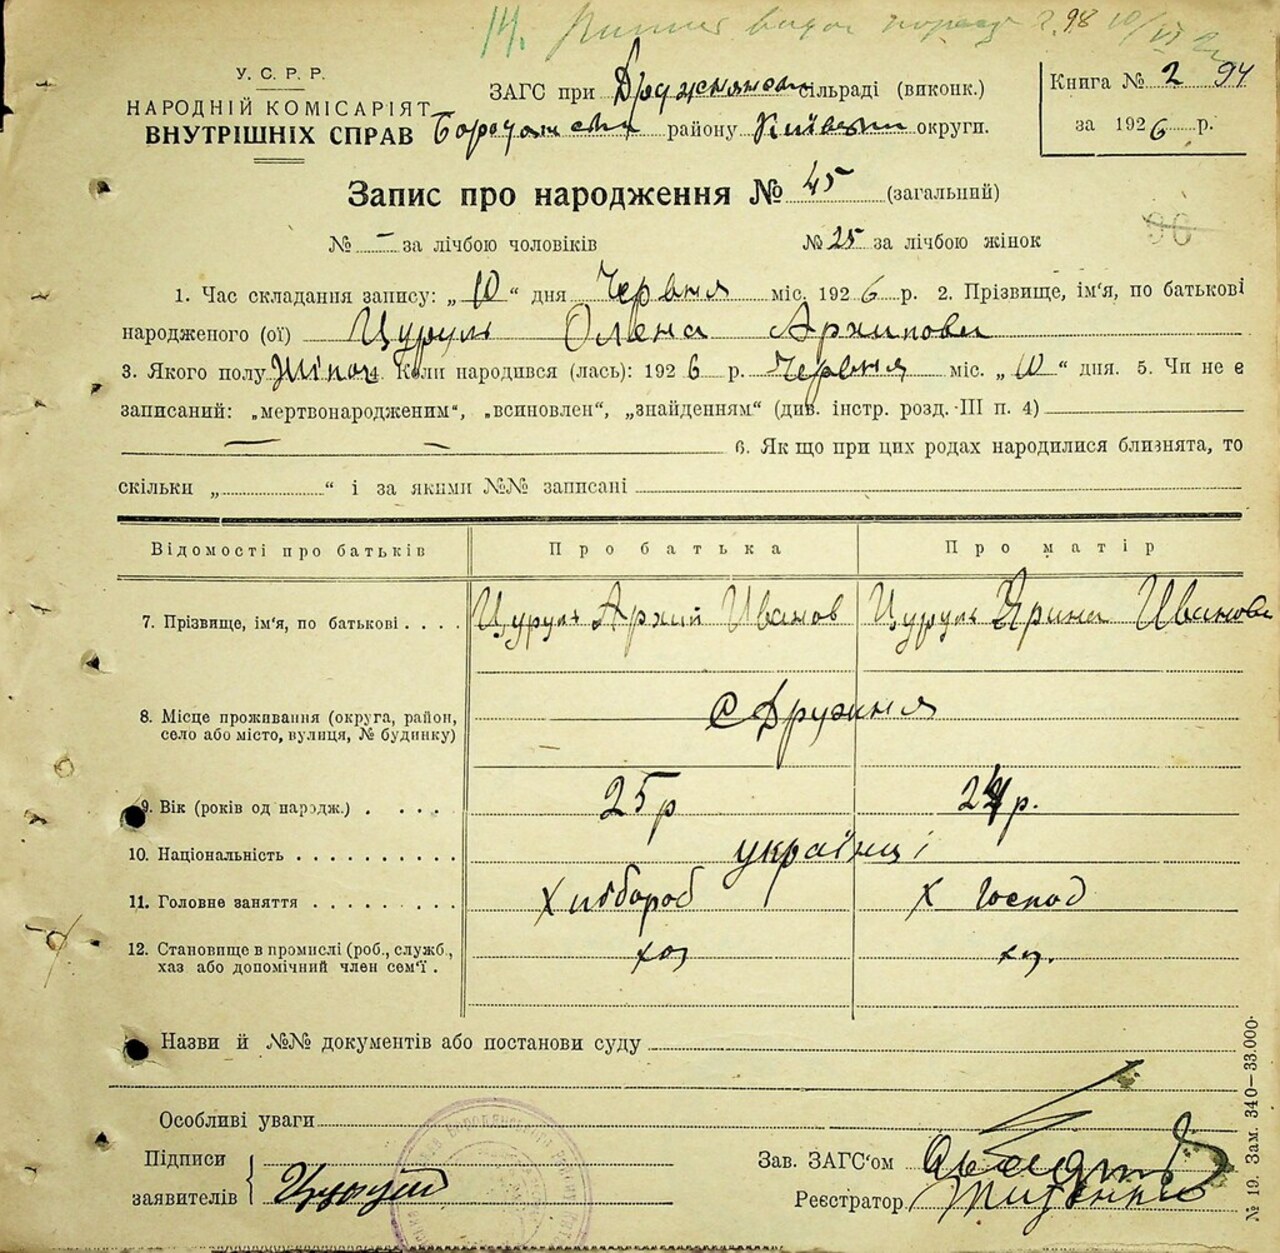 14.
У. С. Р. Р.
НАРОДНІЙ КОМІСАРІЯТ
ВНУТРІШНІХ СПРАВ
ЗАГС при Дружнянськ сільраді (виконк.)
Бородянськ району Київськ округи.
Книга № 2 94
за 1926 р.
Запис про народження № 45 (загальний)
№ – за лічбою чоловіків № 25 за лічбою жінок
96
1. Час складання запису: „10“ дня Червня міс. 1926 р. 2. Прізвище, ім'я, по батькові
народженого (ої) Цуруль Олена Архипови
3. Якого полу Жіноч 4. Коли народився (лась): 1926 р. Червня міс. „10“ дня. 5. Чи не є
записаний: „мертвонародженим“, „всиновлен“, „знайденням“ (див. інстр. розд. III п. 4)
— — 6. Як що при цих родах народилися близнята, то
скільки „ “ і за якими №№ записані
Відомості про батьків Про батька Про матір
7. Прізвище, ім'я, по батькові . . . . Цуруль Архип Иванов Цуруль Ярина Иванова
8. Місце проживання (округа, район,
село або місто, вулиця, № будинку)
с Дружня
9. Вік (років од народж.) . . . . 25 р 24 р.
10. Національність . . . . . . . . . . українці
11. Головне заняття . . . . . . . . . Хлібороб Х господ
12. Становище в промислі (роб., служб.,
хаз або допомічний член сем'ї .
хоз хоз.
Назви й №№ документів або постанови суду
Особливі уваги
Підписи
заявителів
Цуруль
Зав. ЗАГС'ом
Реєстратор
№ 19. Зам. 340—33.000.